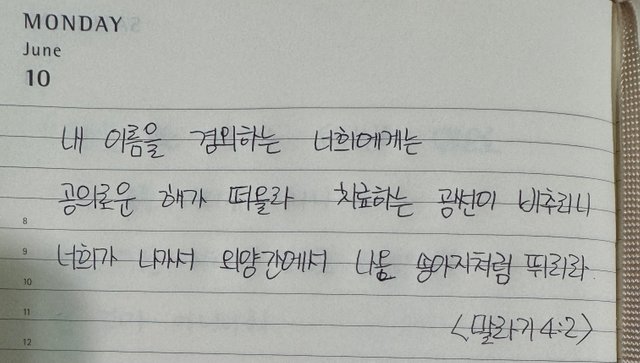 MONDAY
June
10
내 이름을 경외하는 너희에게는
공의로운 해가 떠올라 치료하는 광선이 비추리니
8
너희가 나가서 외양간에서 나온 송아지처럼 뛰리라
9
10
<말라기 4:2>
11
12